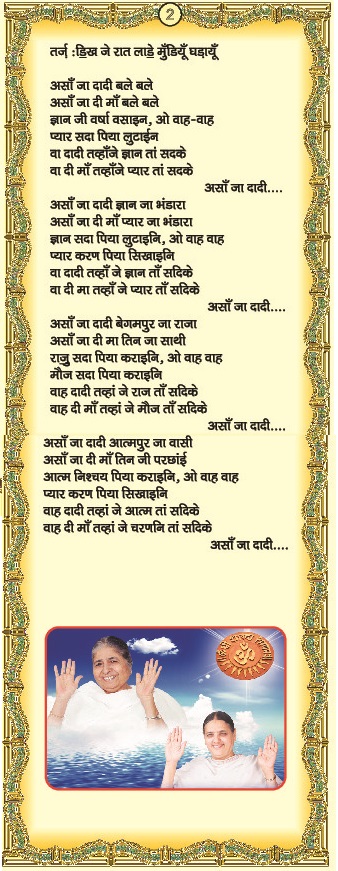 2
तर्ज़ :ड॒िख ने रात लाडे॒ मुँडियूँ घड़ायूँ
असाँ जा दादी बले बले
असाँ जा दी माँ बले बले
ज्ञान जी वर्षा वसाइन, ओ वाह-वाह
प्यार सदा पिया लुटाईन
वा दादी तव्हाँजे ज्ञान तां सदके
वा दी माँ तव्हाँजे प्यार तां सदके
असाँ जा दादी....
असाँ जा दादी ज्ञान जा भंडारा
असाँ जा दी माँ प्यार जा भंडारा
ज्ञान सदा पिया लुटाइनि, ओ वाह वाह
प्यार करण पिया सिखाइनि
वा दादी तव्हाँ जे ज्ञान ताँ सदिके
वा दी मा तव्हाँ जे प्यार ताँ सदिके
असाँ जा दादी....
असाँ जा दादी बेगमपुर जा राजा
असाँ जा दी मा तिन जा साथी
राजु॒ सदा पिया कराइनि, ओ वाह वाह
मौज सदा पिया कराइनि
वाह दादी तव्हां जे राज ताँ सदिके
वाह दी माँ तव्हां जे मौज ताँ सदिके
असाँ जा दादी....
असाँ जा दादी आत्मपुर जा वासी
असाँ जा दी माँ तिन जी परछांई
आत्म निश्चय पिया कराइनि, ओ वाह वाह
प्यार करण पिया सिखाइनि
वाह दादी तव्हां जे आत्म तां सदिके
वाह दी माँ तव्हां जे चरणनि तां सदिके
असाँ जा दादी....
ॐ